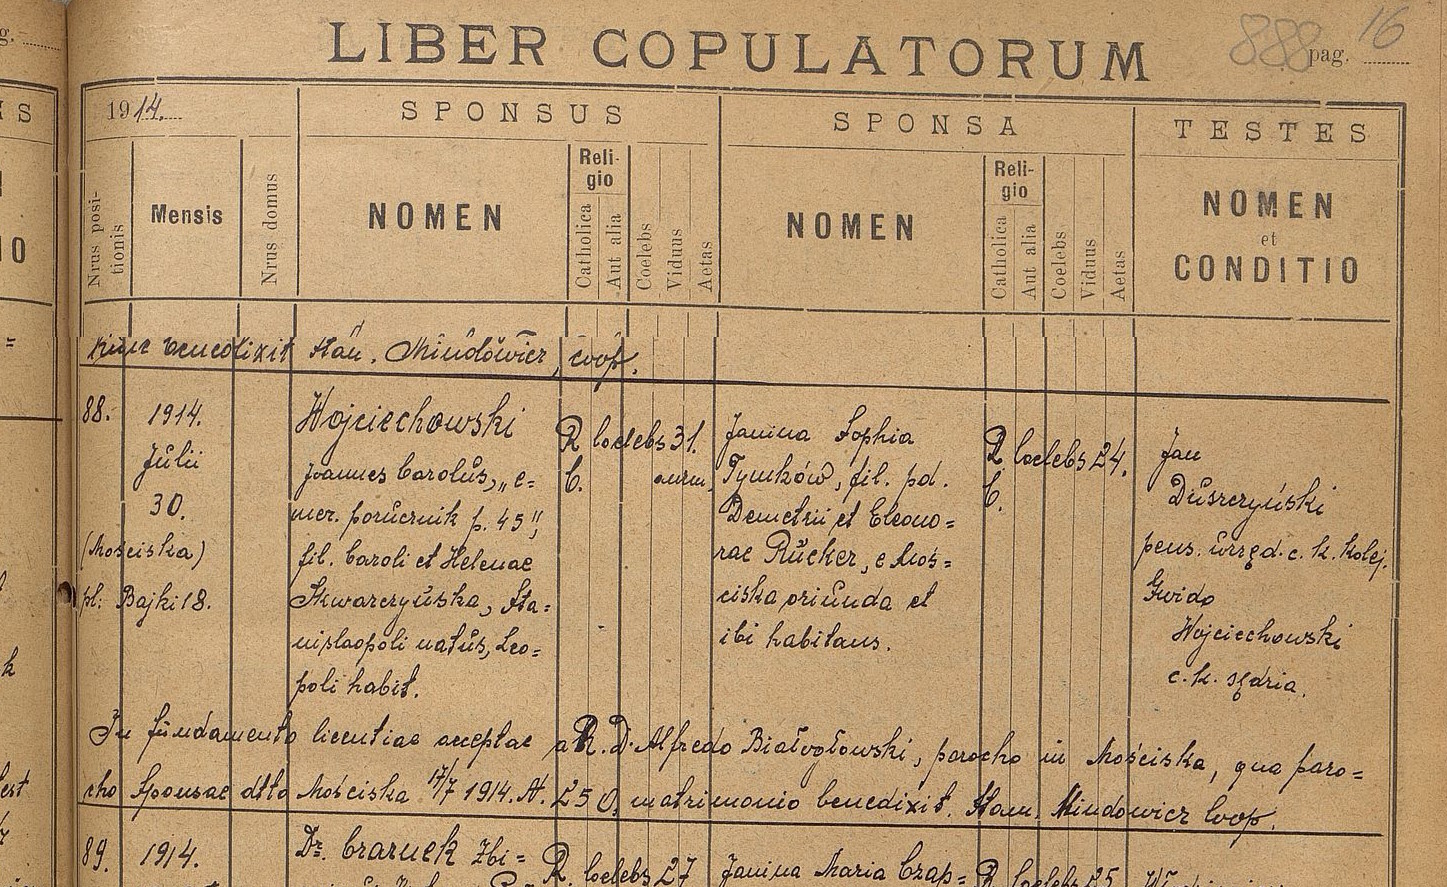 LIBER COPULATORUM
888 pag. 16
1914.
SPONSUS
SPONSA
TESTES
Nrus positionis
Mensis
Nrus domus
NOMEN
Religio
Catholica
Aut alia
Coelebs
Viduus
Aetas
NOMEN
Religio
Catholica
Aut alia
Coelebs
Viduus
Aetas
NOMEN
et
CONDITIO
benedixit Stan. Mindowicz, coop.
88.
1914.
Julii
30.
(Mościska)
pl. Bajki 18.
Wojciechowski
Joannes Carolus, „e=
mer. porucznik p. 45",
fil. Caroli et Helenae
Skwarczyńska, Sta=
nislaopoli natus, Leo=
poli habit.
R. Coelebs 31.
C. ann.
Janina Sophia
Tymków, fil. pd.
Demetrii et Eleono=
rae Rücker, e Moś=
ciska oriunda et
ibi habitans.
R. Coelebs 24.
C.
Jan
Duszczyński
pens. urzęd. c. k. kolej.
Gwido
Wojciechowski
c. k. sędzia.
In fundamento licentiae acceptae a R. D. Alfredo Białogłowski, parocho in Mościska, qua paro=
cho Sponsae dtto Mościska 17/7 1914. N. 250, matrimonio benedixit. Stan. Mindowicz Coop.
89.
1914.
Dr. Czarnek Zbi=
R. Coelebs 27
Janina Maria Czap=
R. Coelebs 25